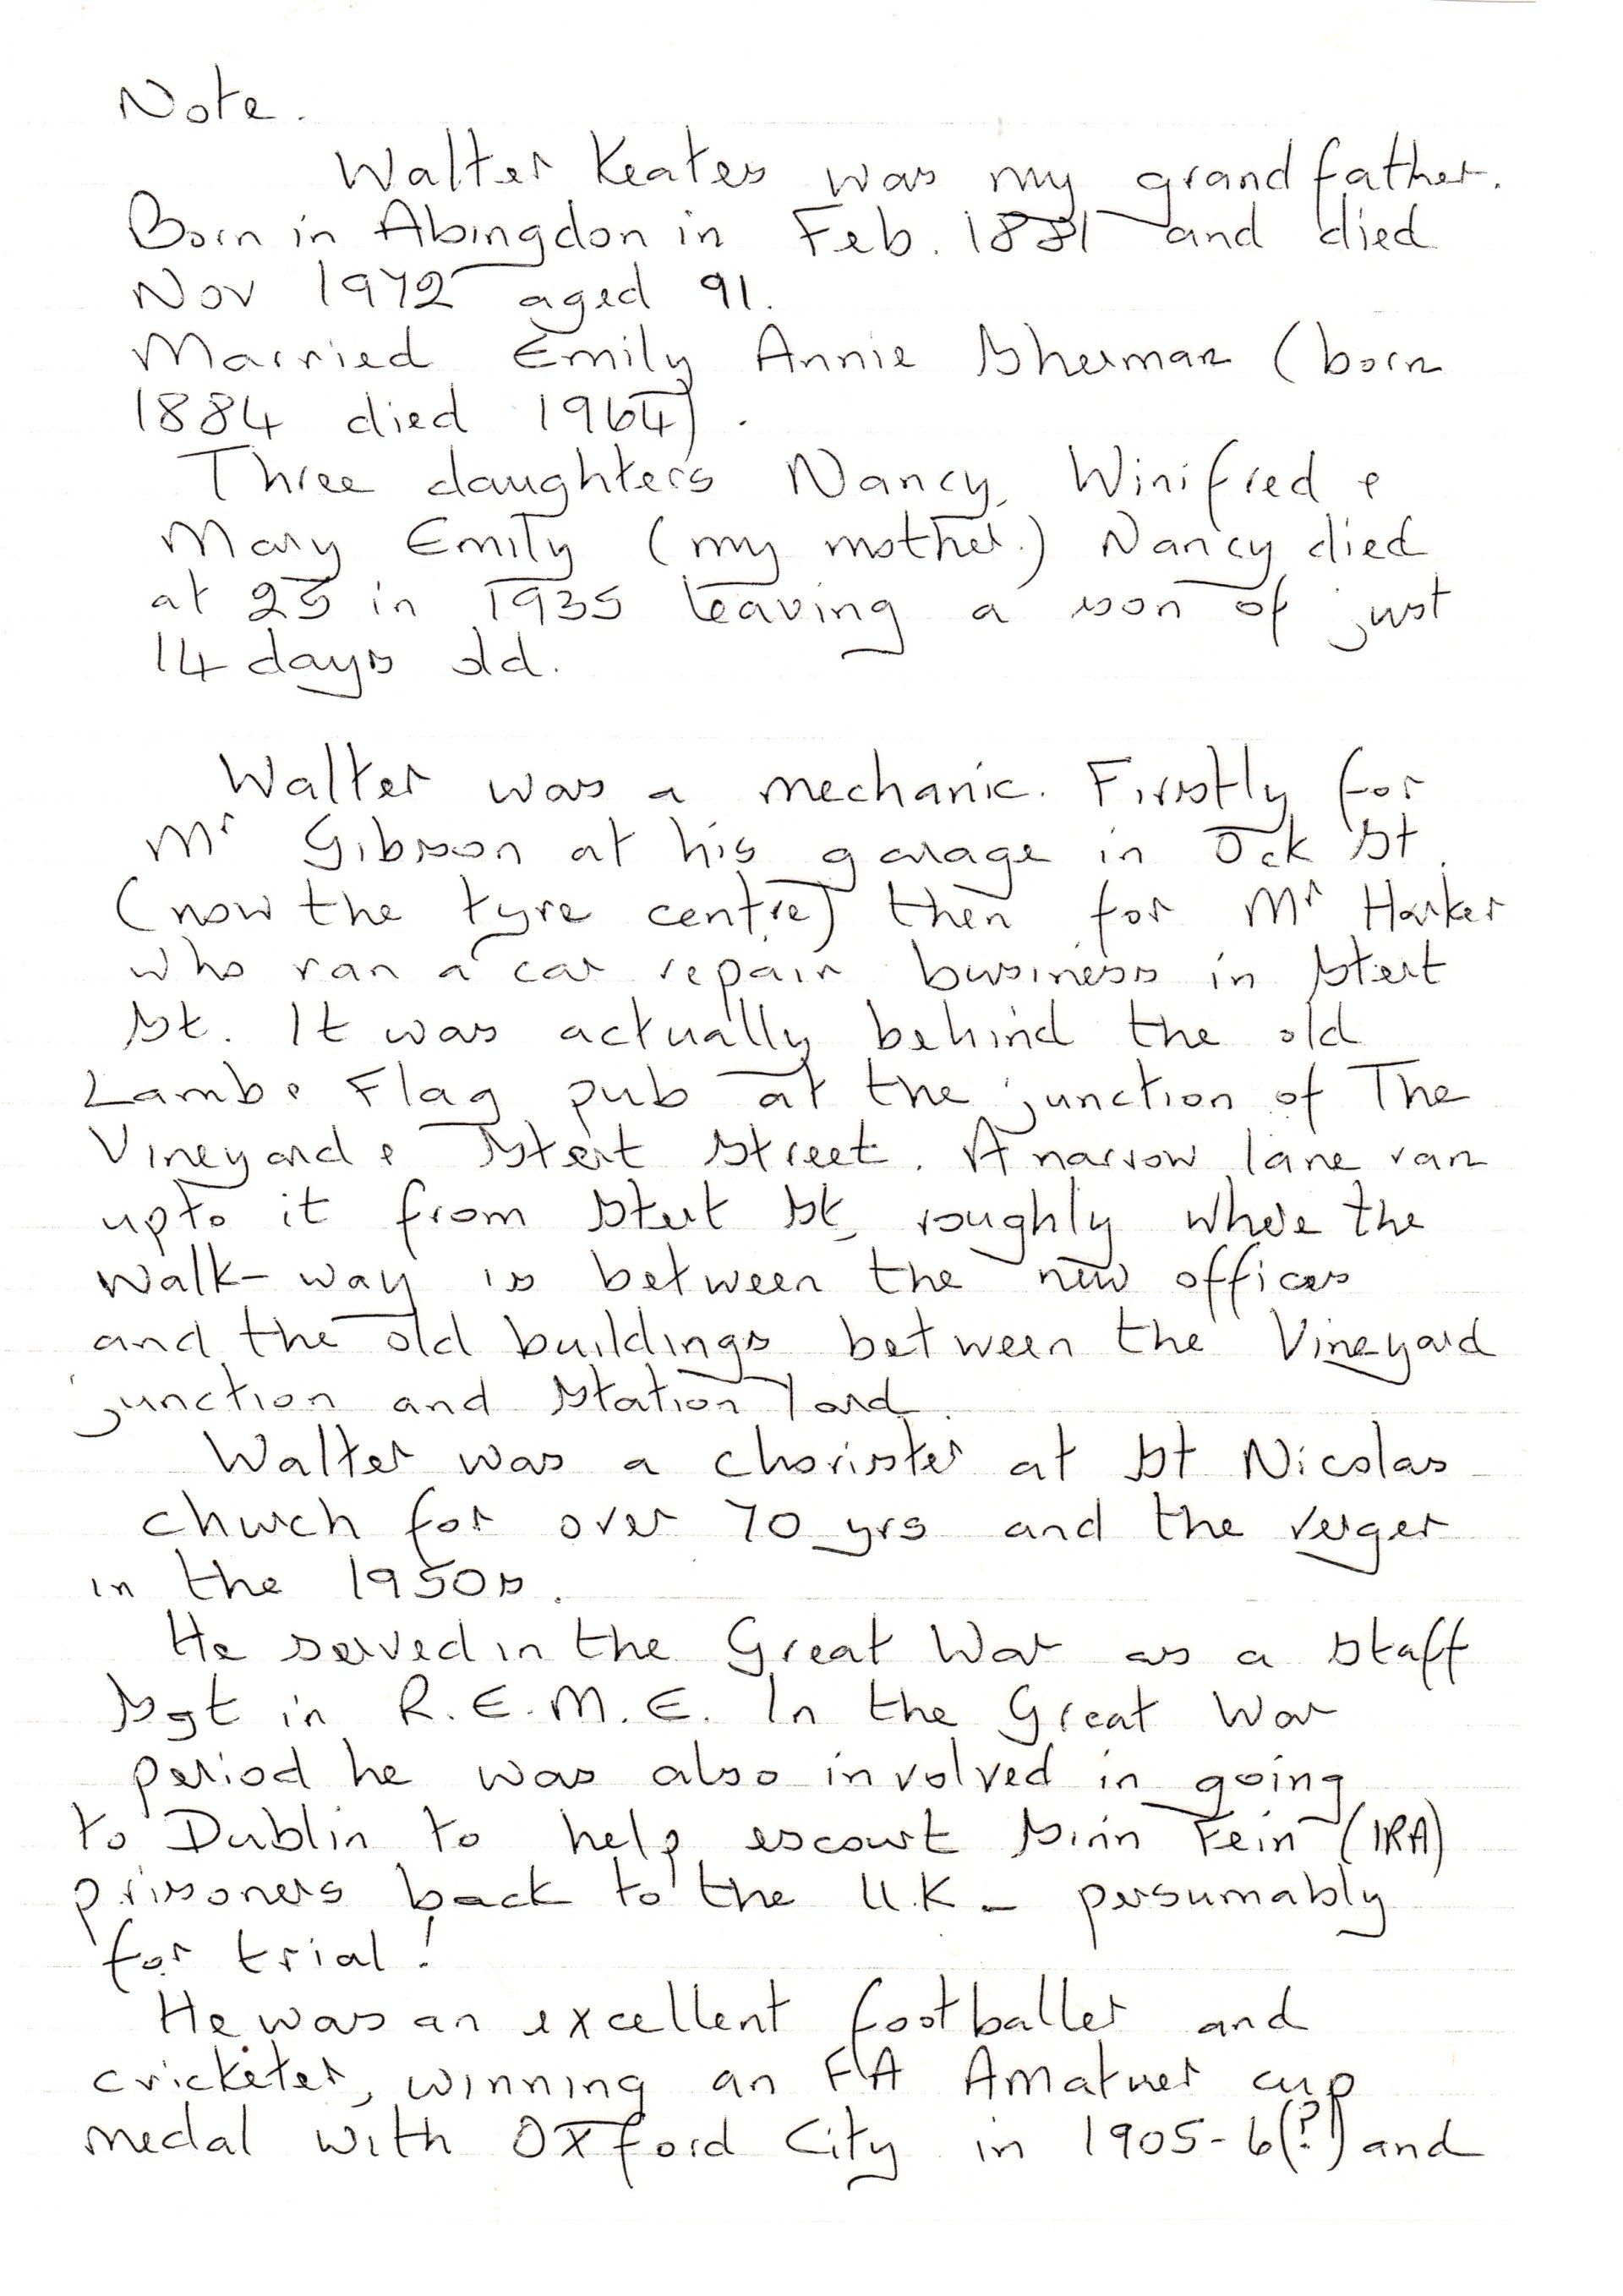 Note.
Walter Keates was my grandfather.
Born in Abingdon in Feb. 1881 and died
Nov 1972 aged 91.
Married Emily Annie Sherman (born
1884 died 1964).
Three daughters Nancy, Winifred &
Mary Emily (my mother.) Nancy died
at 25 in 1935 leaving a son of just
14 days old.
Walter was a mechanic. Firstly for
Mr Gibson at his garage in Ock St.
(now the tyre centre) then for Mr Harker
who ran a car repair business in Stert
St. It was actually behind the old
Lamb & Flag pub at the junction of The
Vineyard & Stert Street. A narrow lane ran
upto it from Stert St, roughly where the
walk-way is between the new offices
and the old buildings between the Vineyard
junction and Station Yard.
Walter was a chorister at St Nicolas
church for over 70 yrs and the verger
in the 1950s.
He served in the Great War as a Staff
Sgt in R.E.M.E. In the Great War
period he was also involved in going
to Dublin to help escourt Sinn Fein (IRA)
prisoners back to the U.K - persumably
for trial!
He was an excellent footballer and
cricketer, winning an FA Amatuer cup
medal with Oxford City in 1905-6(?) and